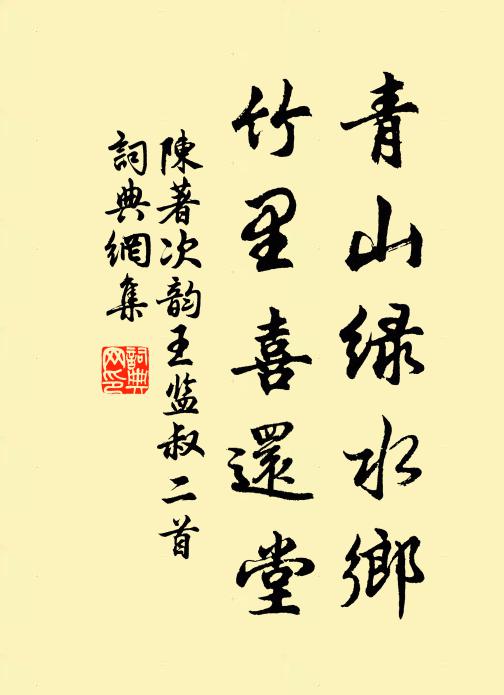 青山绿水鄉
竹里喜還堂
陳著次韵王监叔二首
詞典網集
詞典网印